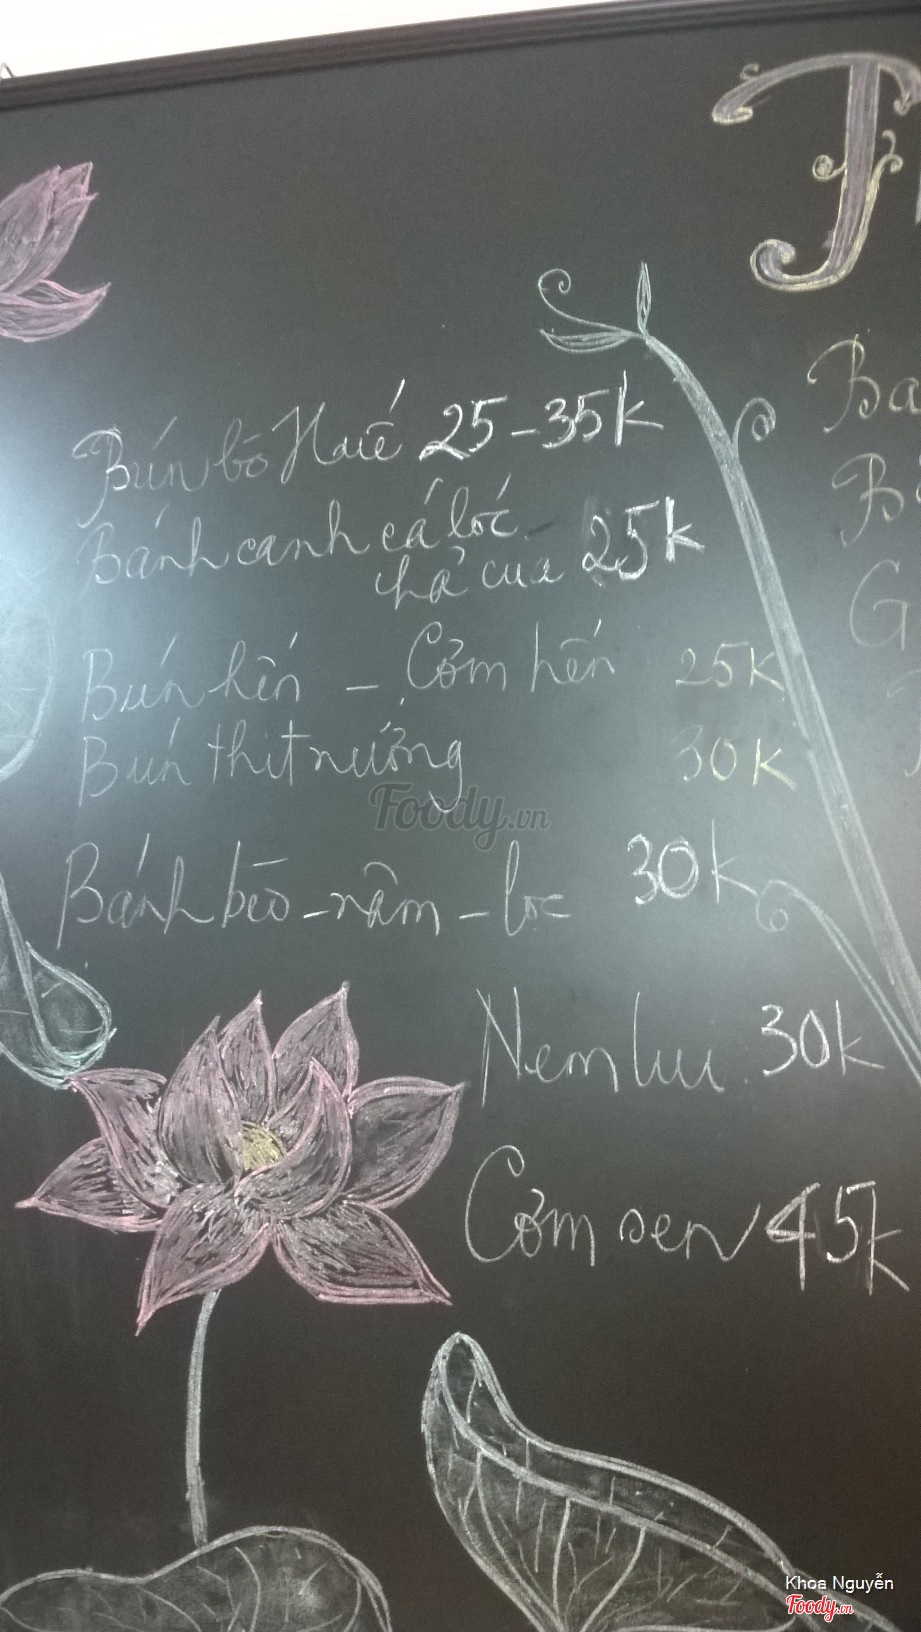 Bún bò Huế 25-35k
Bánh canh cá lóc
chả cua 25k
Bún hến - Cơm hến 25k
Bún thịt nướng 30k
Foody.vn
Bánh bèo - nậm - lọc 30k
Nem lụi 30k
Cơm sen 45k
Khoa Nguyễn
Foody.vn